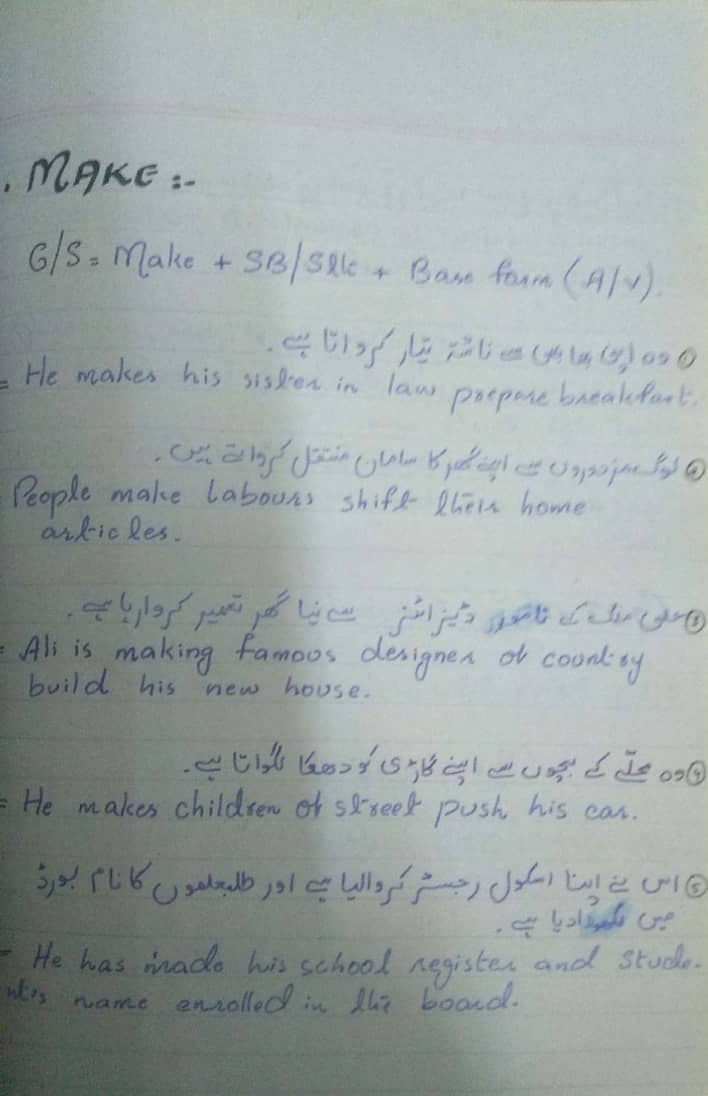 . MAKE :-
G/S = Make + SB/Sth + Base form (A/V).
① وہ اپنی بھابھی سے ناشتہ تیار کرواتا ہے۔
= He makes his sister in law prepare breakfast.
② لوگ مزدوروں سے اپنے گھر کا سامان منتقل کرواتے ہیں۔
People make labours shift their home
articles.
③ علی ملک کے نامور ڈیزائنر سے نیا گھر تعمیر کروارہا ہے۔
= Ali is making famous designer of country
build his new house.
④ وہ محلّے کے بچوں سے اپنے گاڑی کو دھکا لگواتا ہے۔
= He makes children of street push his car.
⑤ اس نے اپنا اسکول رجسٹر کروالیا ہے اور طلبعلموں کا نام بورڈ
میں دیا ہے۔
= He has made his school register and stude-
nt's name enrolled in the board.